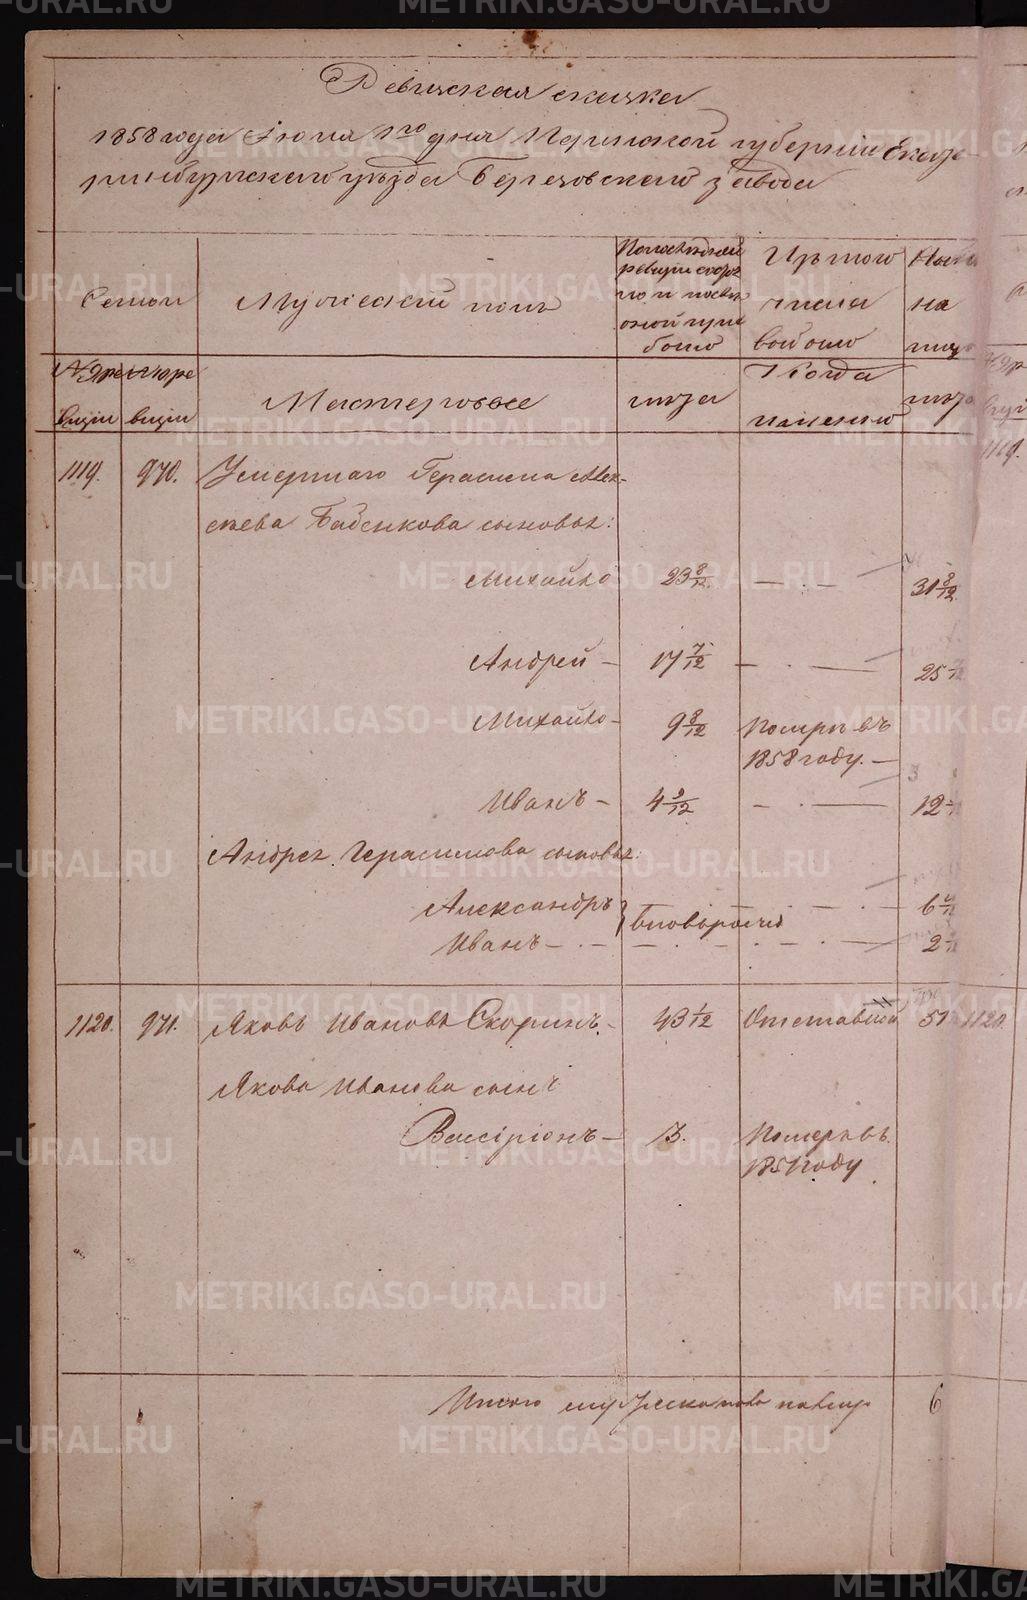 Ревизская сказка
1858 года Июня 1го дня Пермской губернии Екате
ринбургского уѣзда Березовского завода
Семьи
Мужеский полъ
По последней
ревизии состоя
ло и после
оной при
было
Изъ того
числа
выбыло
Ныне
на
лицо
визии
визии
Мастеровые
лета
Когда
именно
лета
1119.
970.
Умершаго Герасима Алек-
сѣева Бабенкова сыновья:
Михайло
23 8/12.
31 8/12.
Андрей -
17 7/12
25
Михайло -
9 8/12
Померъ въ
1858 году. -
3
Иванъ -
4 2/12
12
Андрея Герасимова сыновья:
Александръ
6
вновьрожд
Иванъ -
2
1120.
971.
Яковъ Ивановъ Скоринъ -
43 1/12
Отставной
51
Якова Иванова сынъ
Виссаріонъ -
3.
Померъ въ
1851 году
Итого мужеска пола налицо
6
1119.
1120.
METRIKI.GASO-URAL.RU